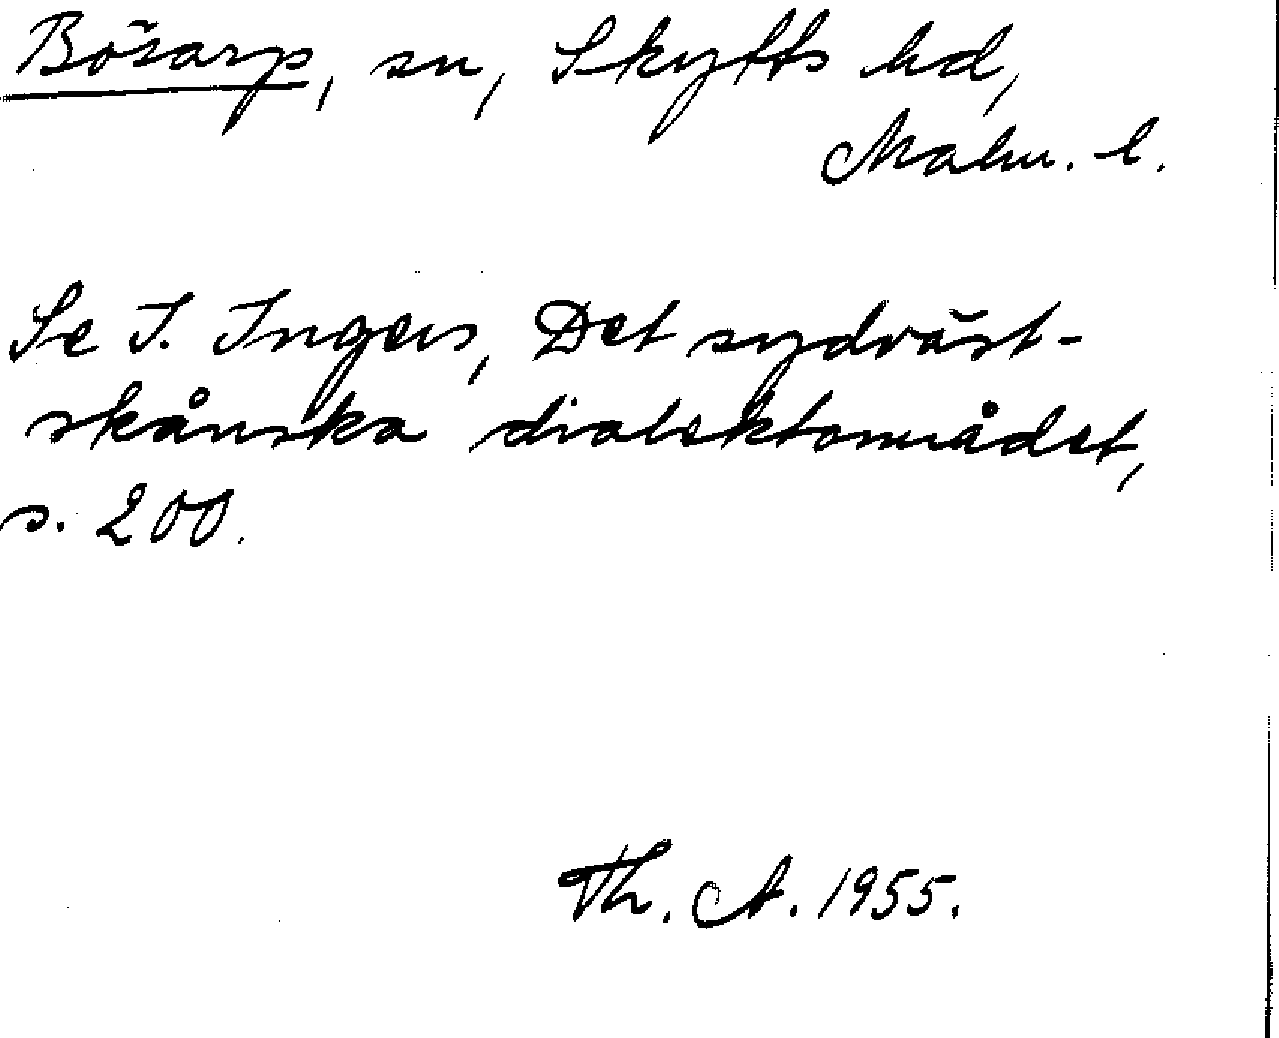 Bösarp, sn, Skytts hd,
Malm. l.
Se I. Ingers, Det sydväst-
skånska dialektområdet,
s. 200.
Th. A. 1955.